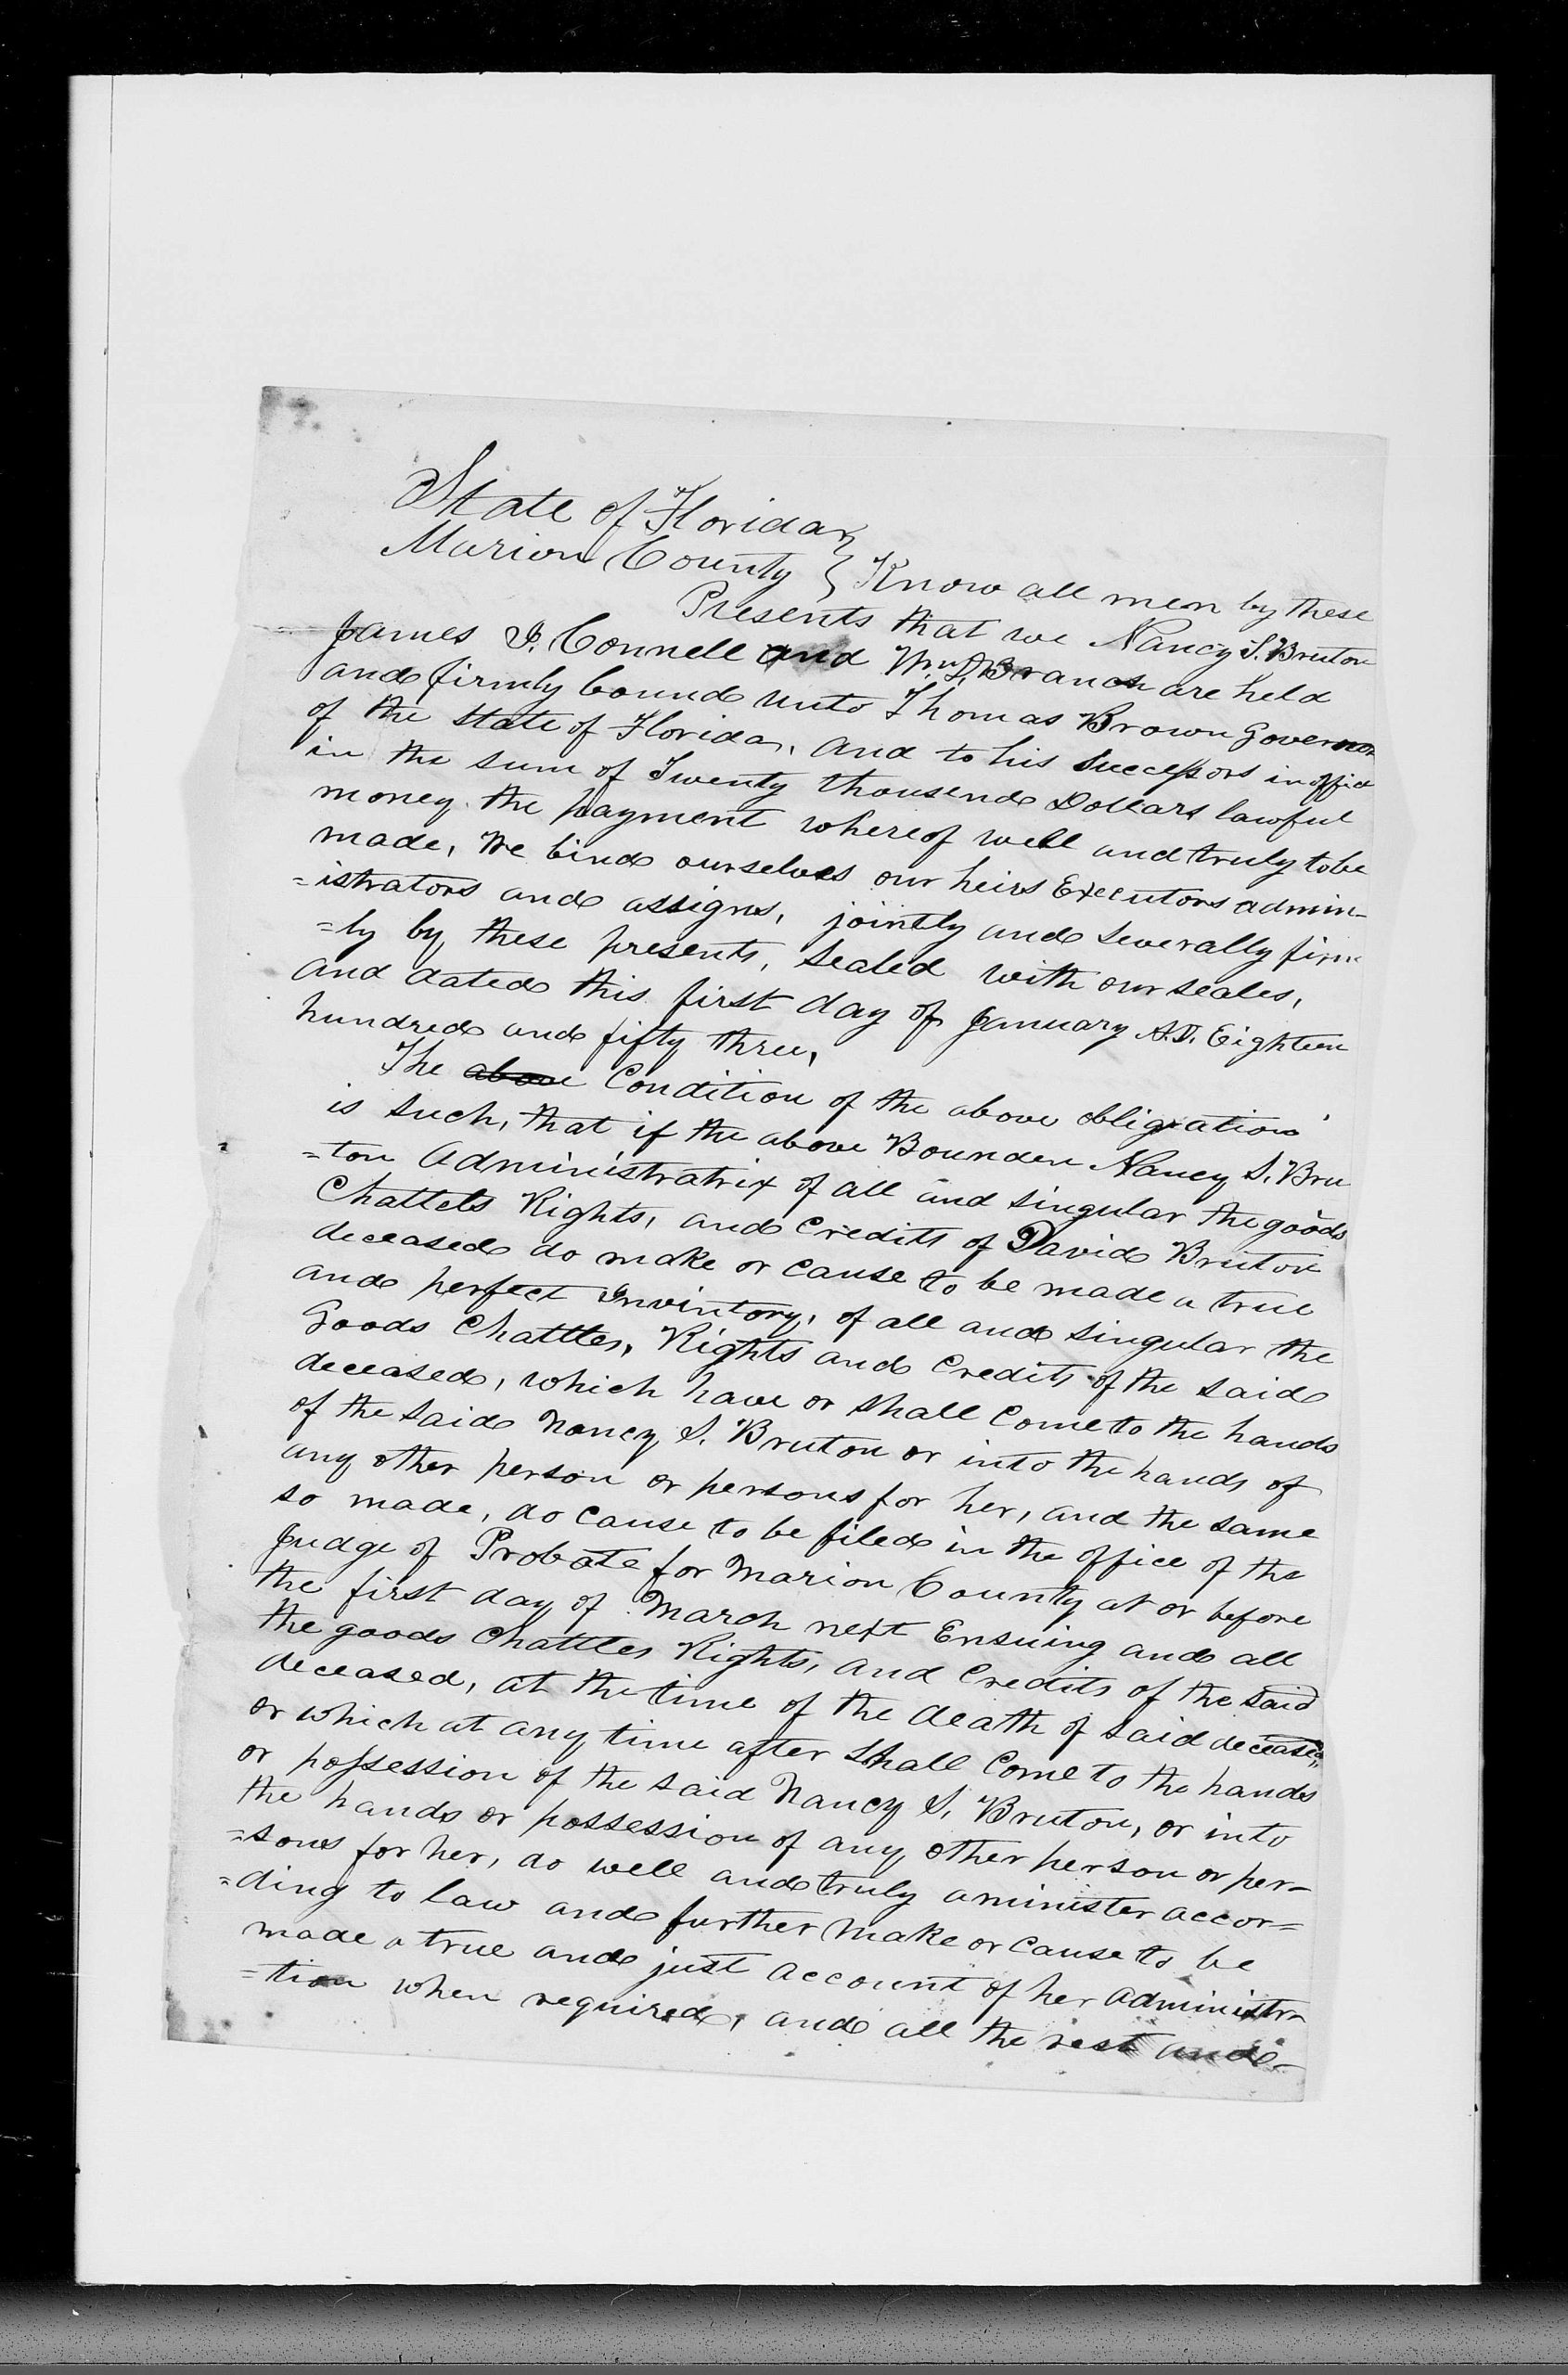 State of Florida
Marion County } Know all men by these
Presents that we Nancy S. Bruton
James I. Connell and Wm. Branch are held
and firmly bound unto Thomas Brown Governor
of the State of Florida, and to his Successors in office
in the sum of Twenty thousend Dollars lawful
money. the payment whereof well and truly to be
made, We bind ourselves our heirs Executors admin-
=istrators and assigns, jointly and severally firm
=ly by these presents, Sealed with our seales,
and dated this first day of January A.D. Eighteen
hundred and fifty three,
The above Condition of the above obligation
is such, that if the above Bounden Nancy S. Bru
=ton Administratrix of all and singular the goods
Chattels Rights, and Credits of David Bruton
deceased do make or cause to be made a true
and perfect Invintory, of all and singular the
Goods Chattles, Rights and Credits of the said
deceased, which have or shall Come to the hands
of the said Nancy S. Bruton or into the hands of
any other person or persons for her, and the same
so made, do cause to be filed in the office of the
Judge of Probate for Marion County at or before
the first day of March next Ensuing and all
the goods Chattles Rights, and Credits of the said
deceased, at the time of the death of said deceased,
or which at any time after Shall Come to the hands
or possession of the said Nancy S. Bruton, or into
the hands or possession of any other person or per-
=sons for her, do well and truly aminister accor=
=ding to law and further make or cause to be
made a true and just account of her administra-
=tion when required, and all the rest and-